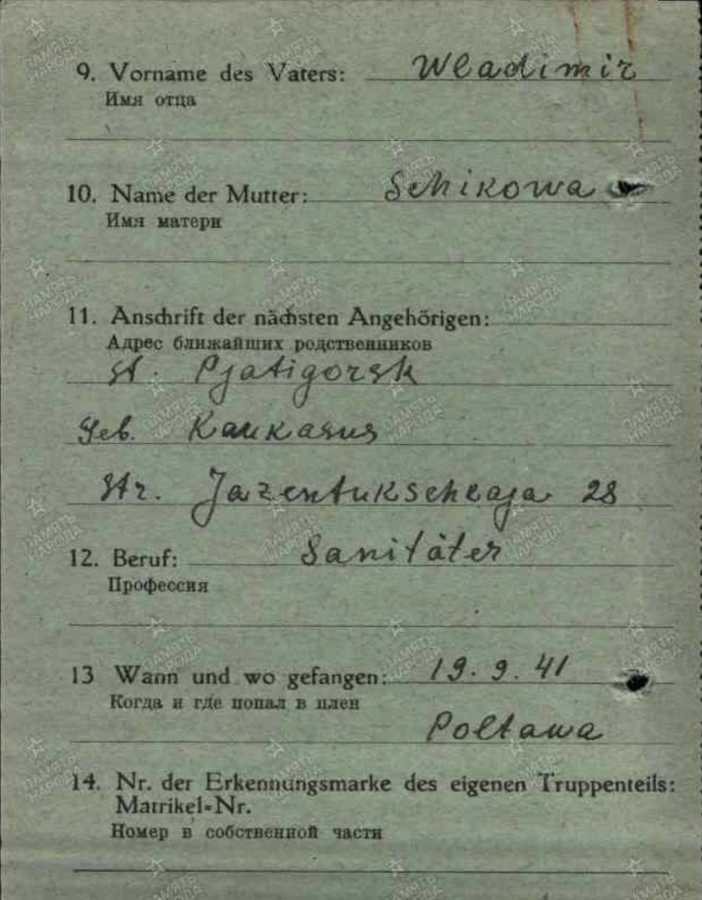 9. Vorname des Vaters: Wladimir
Имя отца
10. Name der Mutter: Schikowa
Имя матери
11. Anschrift der nächsten Angehörigen:
Адрес ближайших родственников
st. Pjatigorsk
Geb. Kaukasus
Str. Jazentukschkaja 28
12. Beruf: Sanitäter
Профессия
13 Wann und wo gefangen: 19. 9. 41
Когда и где попал в плен
Poltawa
14. Nr. der Erkennungsmarke des eigenen Truppenteils:
Matrikel-Nr.
Номер в собственной части
ПАМЯТЬ НАРОДА